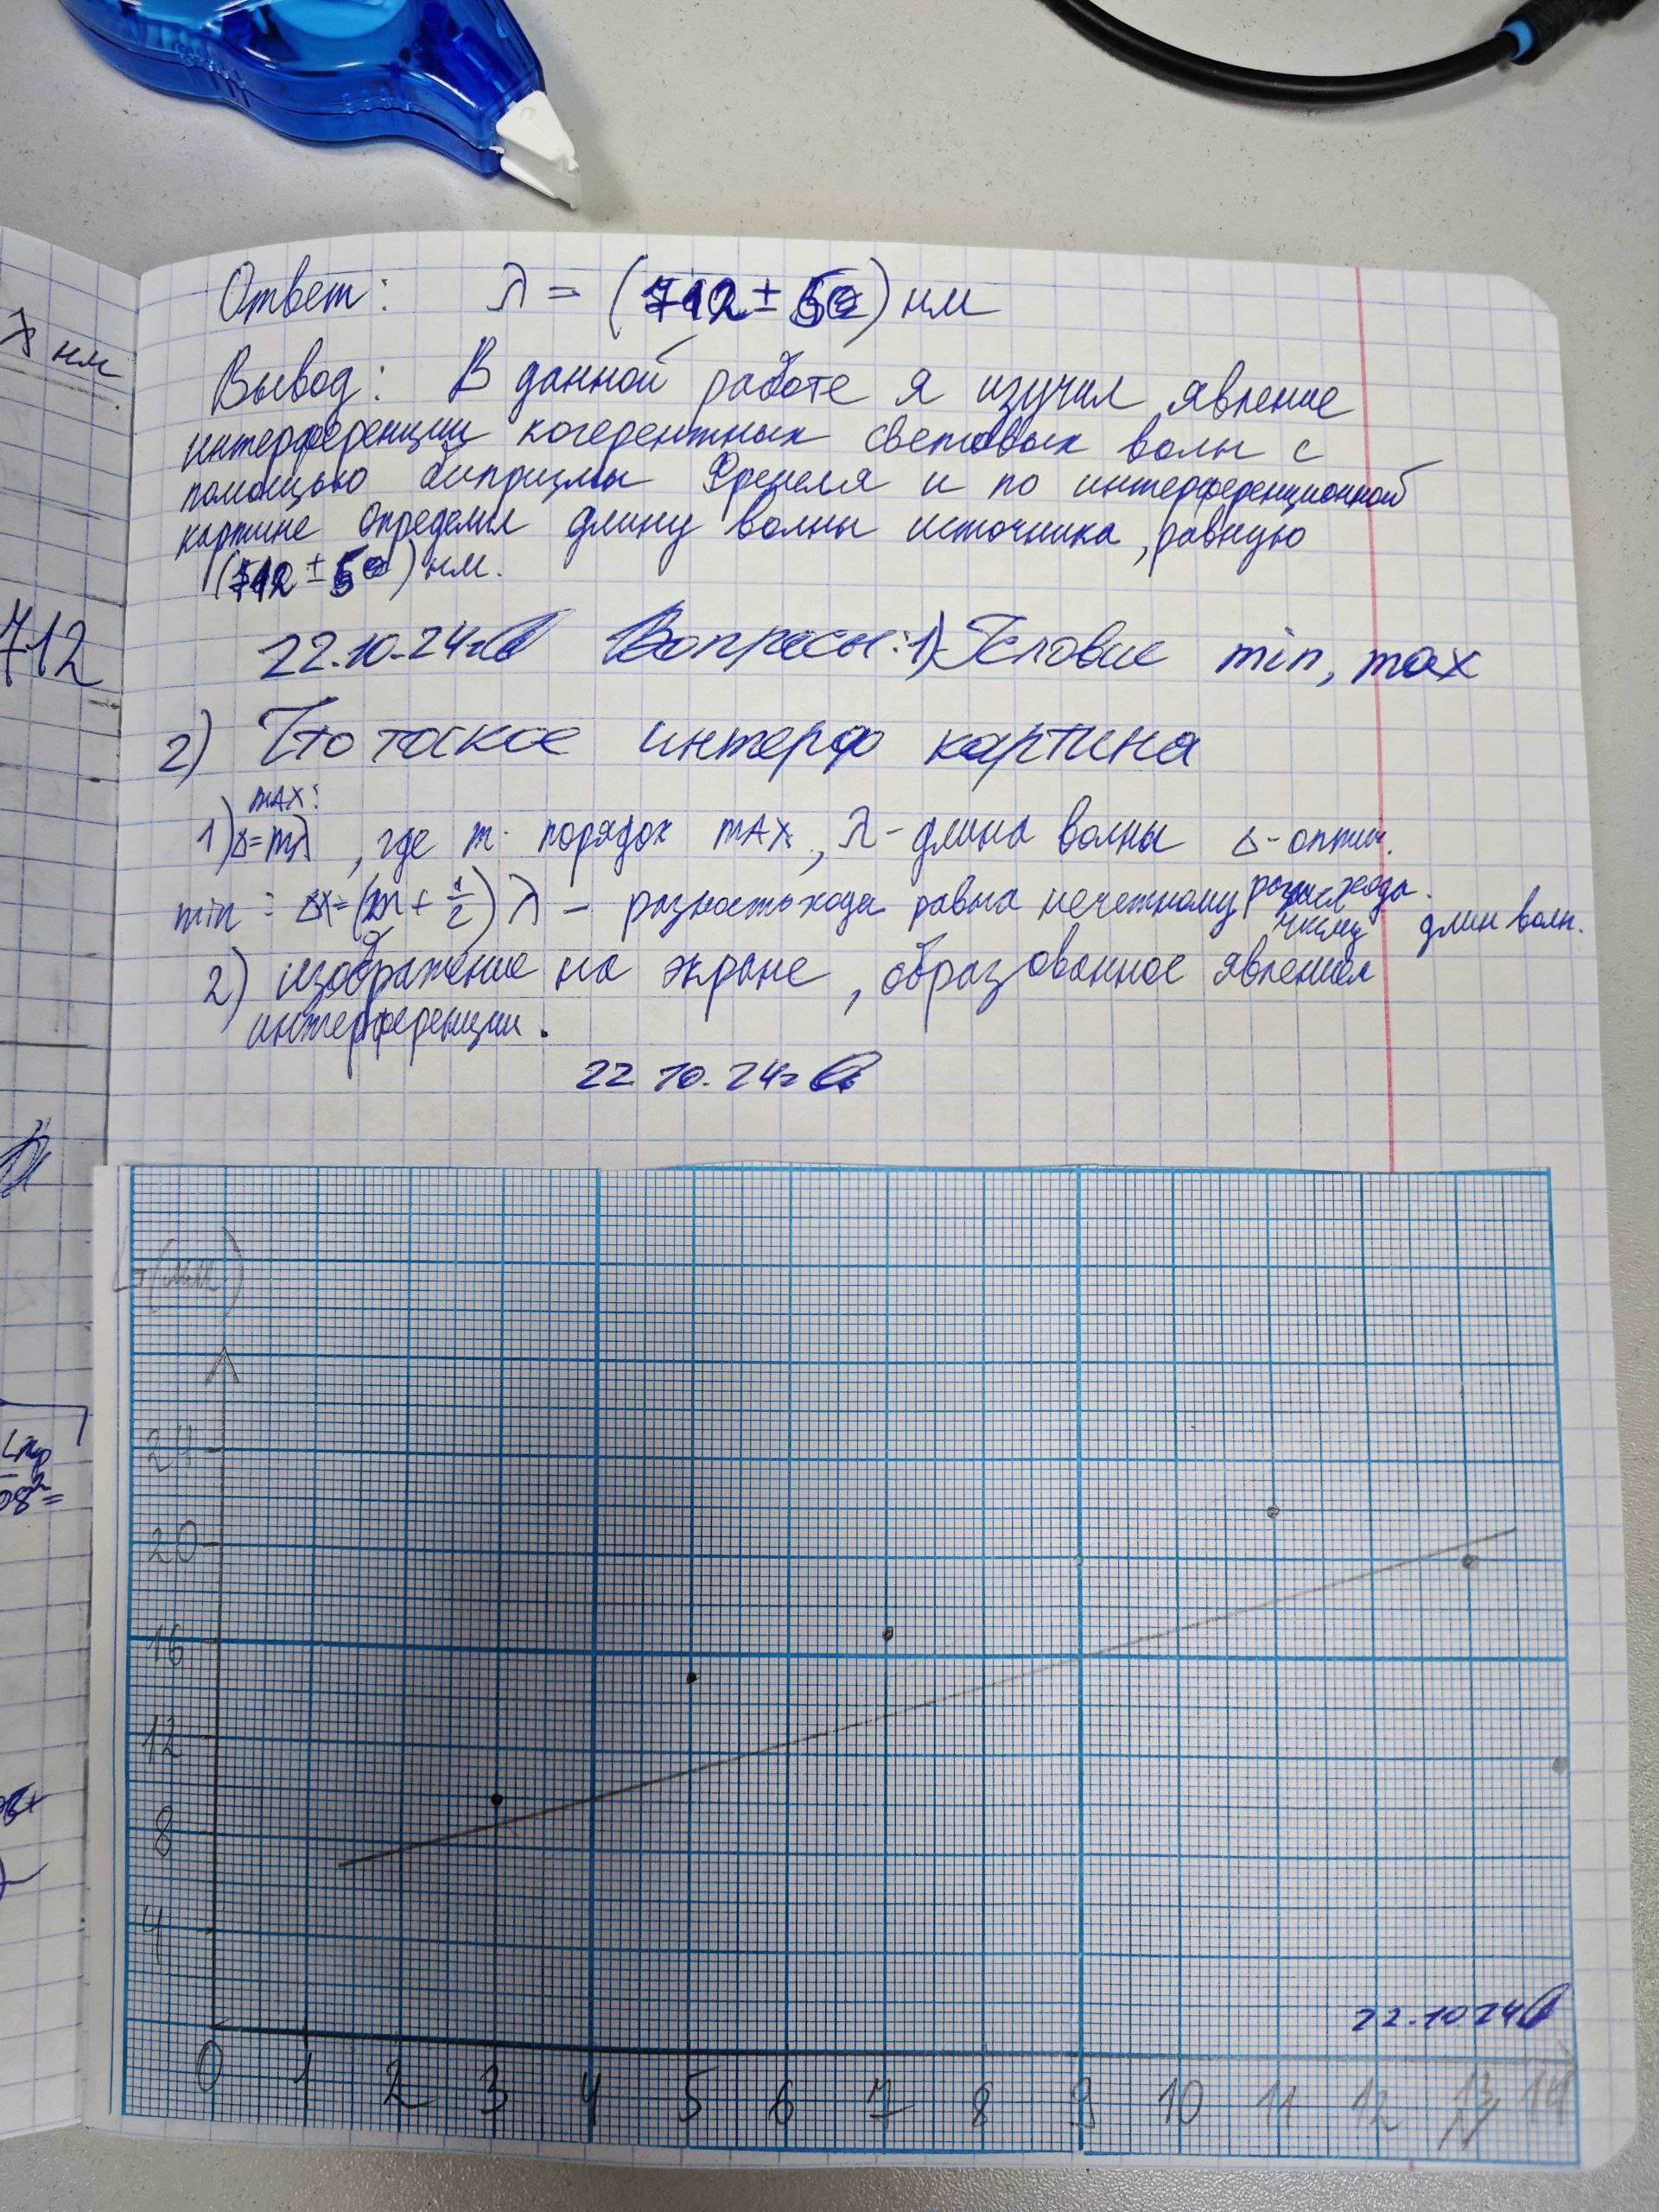 Ответ: λ = (712 ± 50) нм
Вывод: В данной работе я изучил явление
интерференции когерентных световых волн с
помощью бипризмы Френеля и по интерференционной
картине определил длину волны источника, равную
(712 ± 50) нм.
22.10.24г Вопросы: 1) Условие min, max
2) Что такое интерф картина
max:
1) Δ=mλ, где m - порядок max, λ - длина волны Δ - оптич.
разн. хода.
min: Δx=(m + 1/2) λ - разность хода равна нечетному числу длин волн.
2) изображение на экране, образованное явлением
интерференции.
22 10.24г
нм
712
L (мм)
24
20
16
12
8
4
0 1 2 3 4 5 6 7 8 9 10 11 12 13 14
N
22.10 24